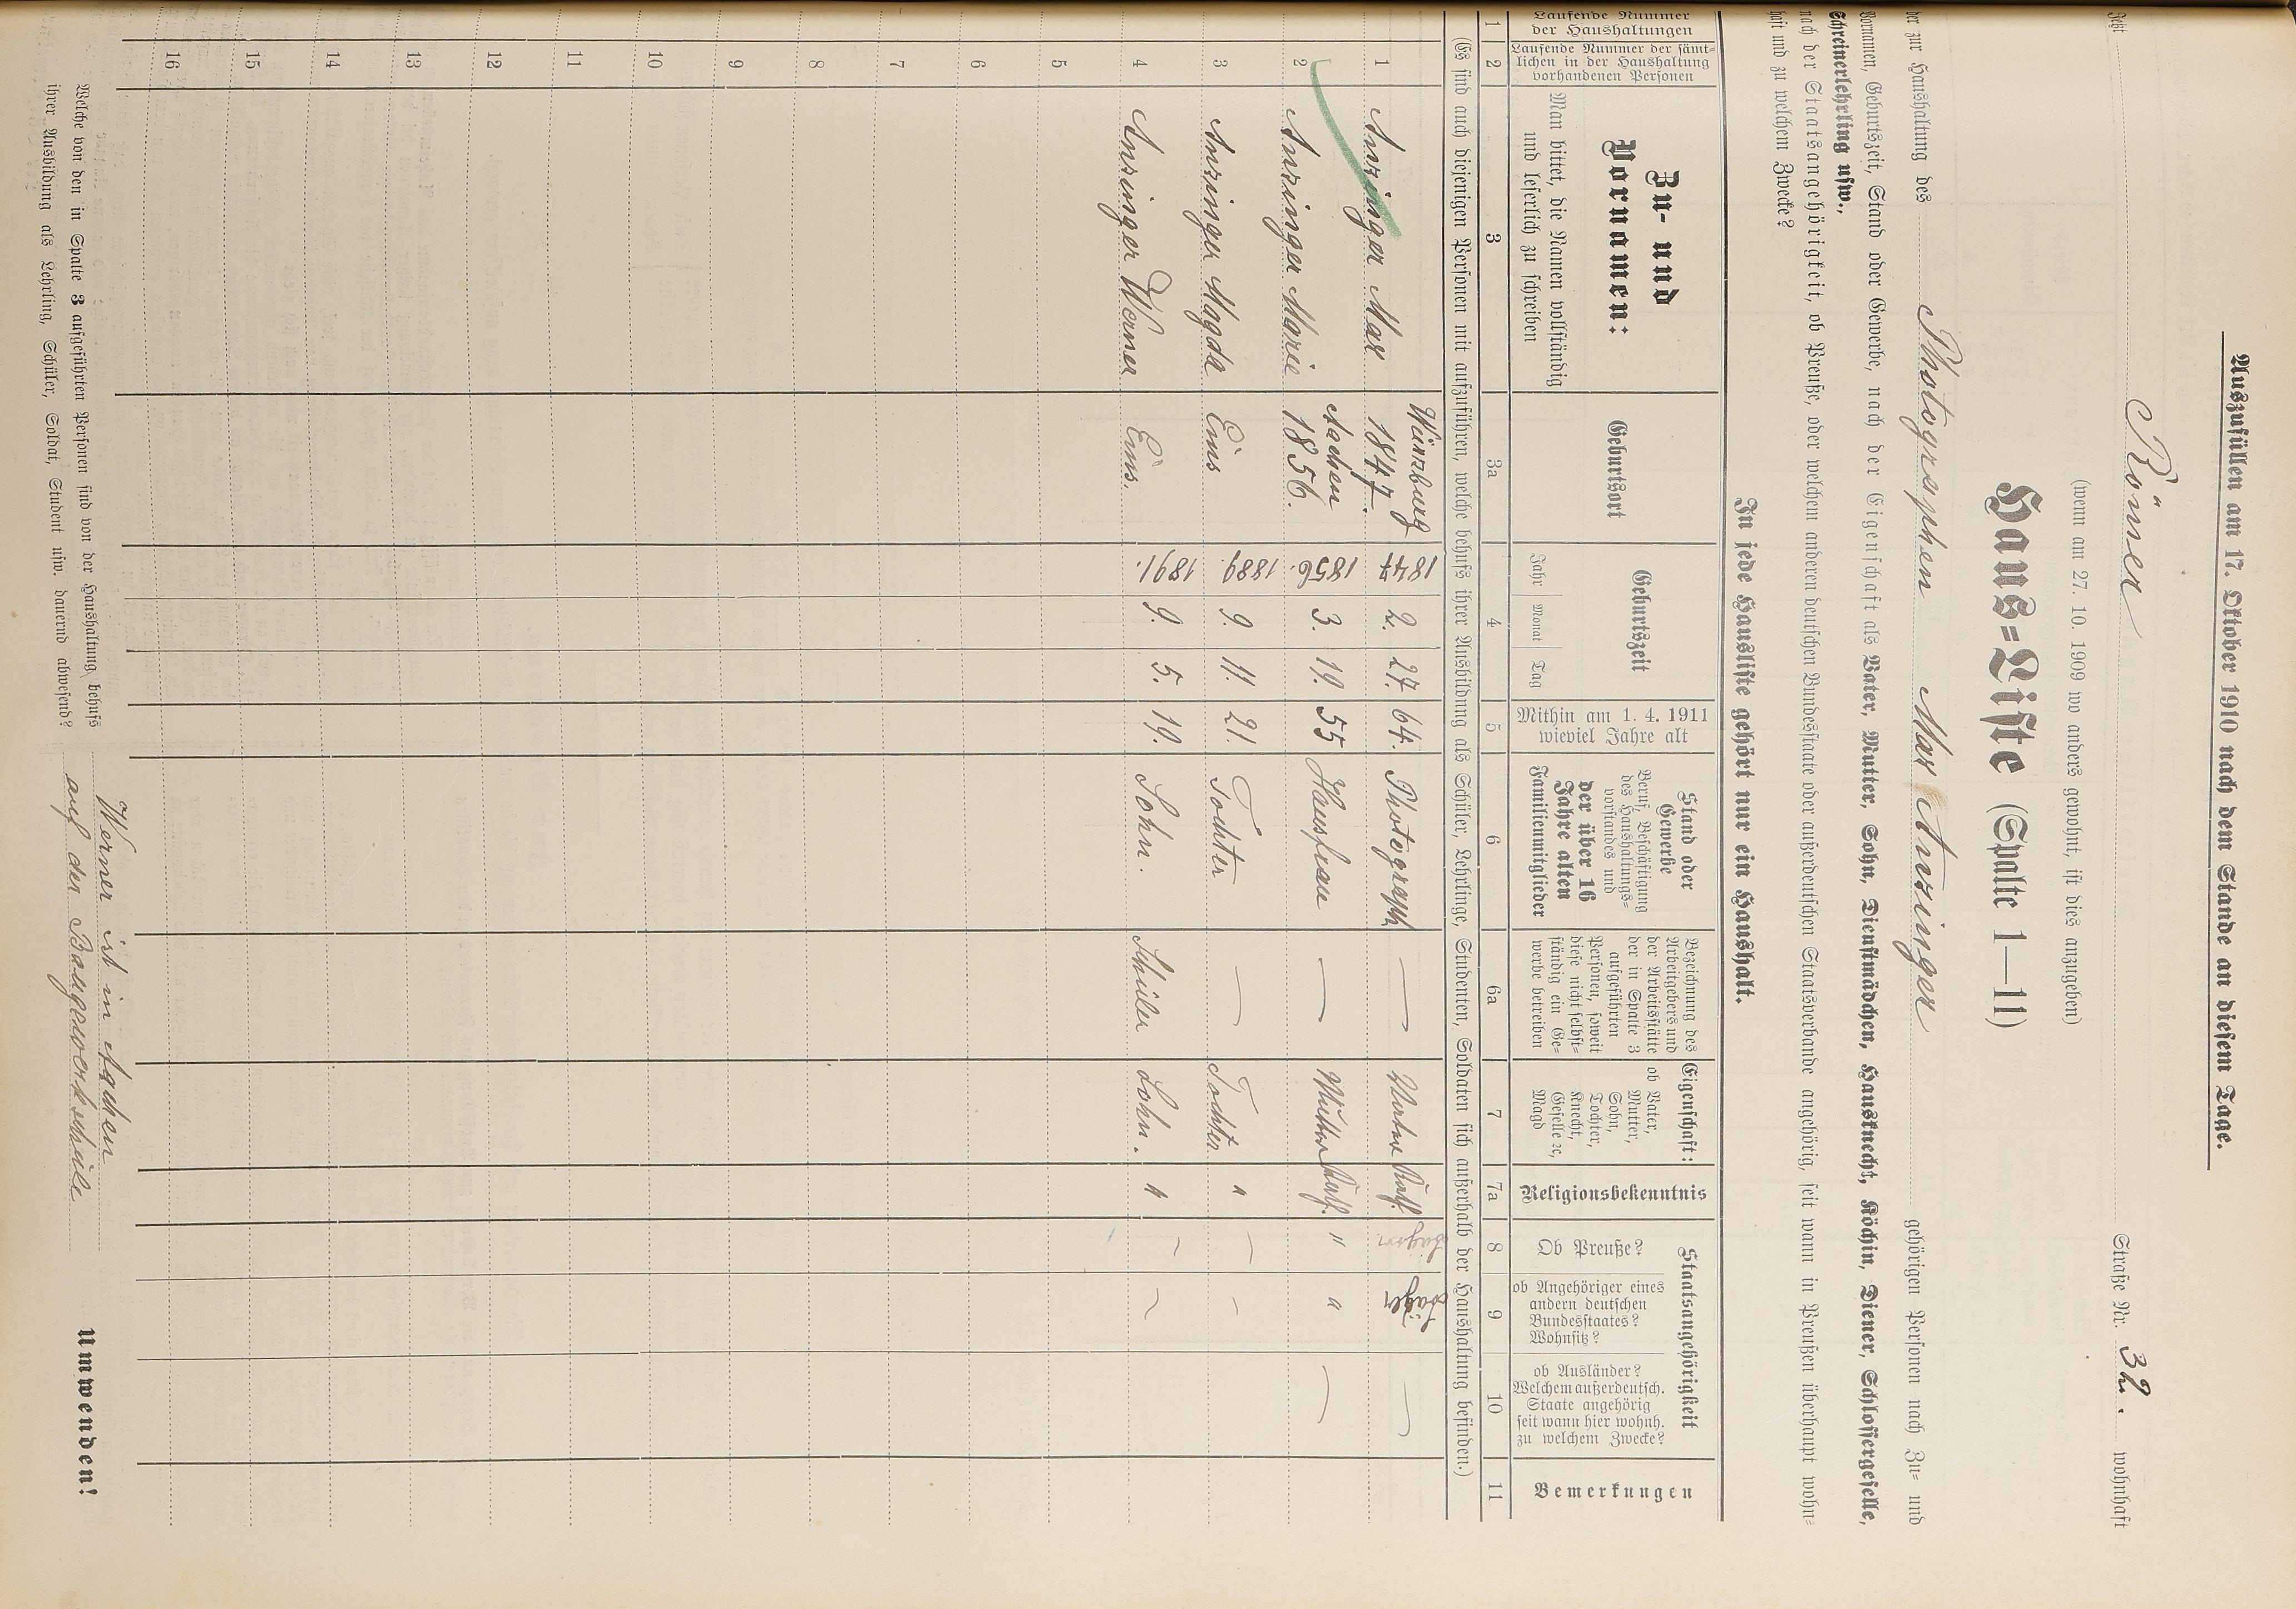 Auszufüllen am 17. Oktober 1910 nach dem Stande an diesem Tage.
Jetzt Römer Straße Nr. 32. wohnhaft
(wenn am 27. 10. 1909 wo anders gewohnt, ist dies anzugeben)
Haus=Liste (Spalte 1—11)
der zur Haushaltung des Photographen Max Anzinger gehörigen Personen nach Zu= und
Vornamen, Geburtszeit, Stand oder Gewerbe, nach der Eigenschaft als Vater, Mutter, Sohn, Dienstmädchen, Hausknecht, Köchin, Diener, Schlossergeselle,
Schreinerlehrling usw.,
nach der Staatsangehörigkeit, ob Preuße, oder welchem anderen deutschen Bundesstaate oder außerdeutschen Staatsverbande angehörig, seit wann in Preußen überhaupt wohn=
haft und zu welchem Zwecke?
In jede Hausliste gehört nur ein Haushalt.
Laufende Nummer
der Haushaltungen
Laufende Nummer der sämt=
lichen in der Haushaltung
vorhandenen Personen
Zu- und
Vornamen:
Man bittet, die Namen vollständig
und leserlich zu schreiben
Geburtsort
Geburtszeit
Jahr Monat Tag
Mithin am 1. 4. 1911
wieviel Jahre alt
Stand oder
Gewerbe
Beruf, Beschäftigung
des Haushaltungs=
vorstandes und
der über 16
Jahre alten
Familienmitglieder
Bezeichnung des
Arbeitgebers und
der Arbeitsstätte
der in Spalte 3
aufgeführten
Personen, soweit
diese nicht selbst=
ständig ein Ge=
werbe betreiben
Eigenschaft:
ob Vater,
Mutter,
Sohn,
Tochter,
Knecht,
Geselle ec,
Magd
Religionsbekenntnis
Staatsangehörigkeit
Ob Preuße?
ob Angehöriger eines
andern deutschen
Bundesstaates?
Wohnsitz?
ob Ausländer?
Welchem außerdeutsch.
Staate angehörig
seit wann hier wohnh.
zu welchem Zwecke?
Bemerkungen
1 2 3 3a 4 5 6 6a 7 7a 8 9 10 11
(Es sind auch diejenigen Personen mit aufzuführen, welche behufs ihrer Ausbildung als Schüler, Lehrlinge, Studenten, Soldaten sich außerhalb der Haushaltung befinden.)
1 Anzinger Max Würzburg 1847. 1847 2. 27. 64. Photograph — Kath. —
2 Anzinger Marie Aachen 1856. 1856. 3. 19. 55 Hausfrau — Mutter Kath. " " —
3 Anzinger Magda Ems 1889. 9. 11. 21 Tochter — Tochter " — —
4 Anzinger Werner Ems. 1891. 9. 5. 19. Sohn. Schüler Sohn. " — —
5
6
7
8
9
10
11
12
13
14
15
16
Welche von den in Spalte 3 aufgeführten Personen sind von der Haushaltung behufs
ihrer Ausbildung als Lehrling, Schüler, Soldat, Student usw. dauernd abwesend?
Werner ist in Aachen
auf der Baugewerkschule
Umwenden!